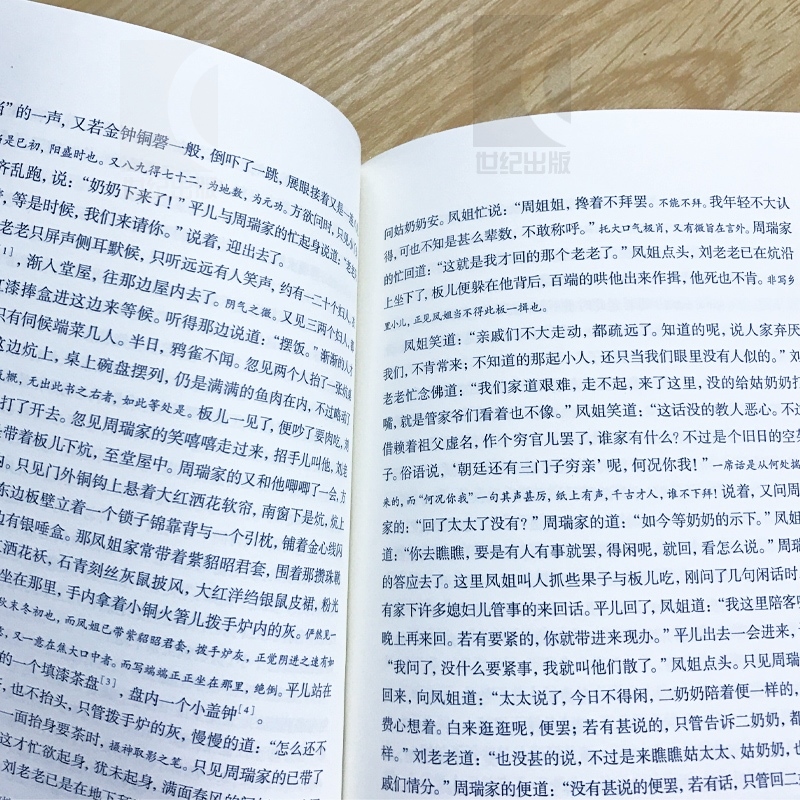 世纪出版
”的一声，又若金钟铜磬一般，倒吓了一跳，展眼接着又是一连
是已初，阳盛时也。又八九得七十二，为地数，为元功。方欲问时，只见小
齐乱跑，说：“奶奶下来了！”平儿与周瑞家的忙起身说道：“老老
，等是时候，我们来请你。”说着，迎出去了。
老老只屏声侧耳默候，只听远远有人笑声，约有一二十个妇人，
[1]，渐入堂屋，往那边屋内去了。阴气之微。又见三两个妇人，都
红漆捧盒进这边来等候。听得那边说道：“摆饭。”渐渐的人才
只有伺候端菜几人。半日，鸦雀不闻。忽见两个人抬了一张炕桌
这边炕上，桌上碗盘摆列，仍是满满的鱼肉在内，不过略动了
概，无出此书之右者，如此等处是。板儿一见了，便吵了要肉吃，刘
打了开去。忽见周瑞家的笑嘻嘻走过来，招手儿叫他，刘老
带着板儿下炕，至堂屋中。周瑞家的又和他唧唧了一会，方
内。只见门外铜钩上悬着大红洒花软帘，南窗下是炕，炕上
东边板壁立着一个锁子锦靠背与一个引枕，铺着金心线闪
边有银唾盒。那凤姐家常带着紫貂昭君套，围着那攒珠勒
红洒花袄，石青刻丝灰鼠披风，大红洋绉银鼠皮裙，粉光
坐在那里，手内拿着小铜火箸儿拨手炉内的灰。伊然见一
秋末冬初也，而凤姐已带紫貂昭君套，拔手炉灰，正觉阴进之速有如
，又一意在焦大口中者。而写端端正正坐在那里，绝倒。平儿站在
的一个填漆茶盘[3]，盘内一个小盖钟[4]。
，也不抬头，只管拨手炉的灰，慢慢的道：“怎么还不
一面抬身要茶时，摄神取影之笔。只见周瑞家的已带了
这才忙欲起身，犹未起身，满面春风的问
刘老老已是在地下拜
问姑奶奶安。凤姐忙说：“周姐姐，搀着不拜罢。不能不拜。我年轻不大认
得，可也不知是甚么辈数，不敢称呼。”托大口气极肖，又有微旨在言外。周瑞家
的忙回道：“这就是我才回的那个老老了。”凤姐点头，刘老老已在炕沿
上坐下了，板儿便躲在他背后，百端的哄他出来作揖，他死也不肯。非写乡
里小儿，正见凤姐当不得此板一揖也。
凤姐笑道：“亲戚们不大走动，都疏远了。知道的呢，说人家弃厌
我们，不肯常来；不知道的那起小人，还只当我们眼里没有人似的。”刘
老老忙念佛道：“我们家道艰难，走不起，来了这里，没的给姑奶奶打
嘴，就是管家爷们看着也不像。”凤姐笑道：“这话没的教人恶心。不过
借赖着祖父虚名，作个穷官儿罢了，谁家有什么？不过是个旧日的空架
子。俗语说，‘朝廷还有三门子穷亲’呢，何况你我！”一席话是从何处掘
来的，而“何况你我”一句其声甚厉，纸上有声，千古才人，谁不下拜！说着，又问周
家的：“回了太太了没有？”周瑞家的道：“如今等奶奶的示下。”凤姐
道：“你去瞧瞧，要是有人有事就罢，得闲呢，就回，看怎么说。”周瑞
的答应去了。这里凤姐叫人抓些果子与板儿吃，刚问了几句闲话时
有家下许多媳妇儿管事的来回话。平儿回了，凤姐道：“我这里陪客
晚上再来回。若有要紧的，你就带进来现办。”平儿出去一会进来，
“我问了，没什么要紧事，我就叫他们散了。”凤姐点头。只见周瑞
回来，向凤姐道：“太太说了，今日不得闲，二奶奶陪着便一样的，
费心想着。白来逛逛呢，便罢；若有甚说的，只管告诉二奶奶，都
样。”刘老老道：“也没甚的说，不过是来瞧瞧姑太太、姑奶奶，也
戚们情分。”周瑞家的便道：“没有甚说的便罢，若有话，只管回二